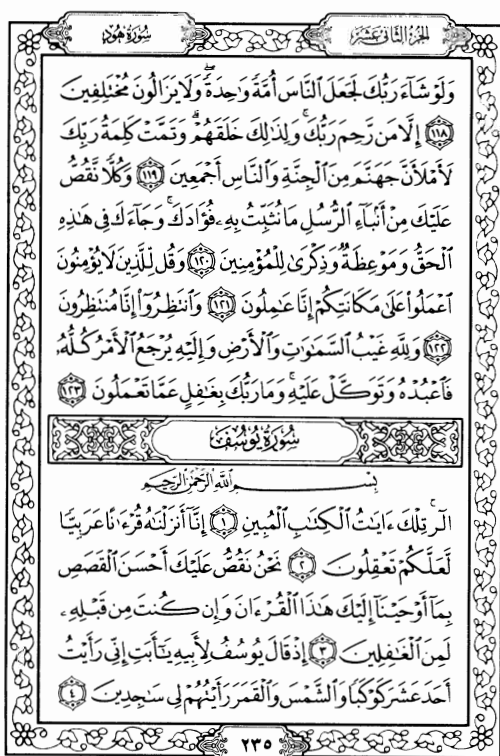 سُورَةُ هُودٍ
الجُزءُ الثَّانِى عَشَرَ
وَلَوْ شَآءَ رَبُّكَ لَجَعَلَ ٱلنَّاسَ أُمَّةً وَٰحِدَةً ۖ وَلَا يَزَالُونَ مُخْتَلِفِينَ
١١٨ إِلَّا مَن رَّحِمَ رَبُّكَ ۚ وَلِذَٰلِكَ خَلَقَهُمْ ۗ وَتَمَّتْ كَلِمَةُ رَبِّكَ
لَأَمْلَأَنَّ جَهَنَّمَ مِنَ ٱلْجِنَّةِ وَٱلنَّاسِ أَجْمَعِينَ ١١٩ وَكُلًّا نَّقُصُّ
عَلَيْكَ مِنْ أَنۢبَآءِ ٱلرُّسُلِ مَا نُثَبِّتُ بِهِۦ فُؤَادَكَ ۚ وَجَآءَكَ فِى هَٰذِهِ
ٱلْحَقُّ وَمَوْعِظَةٌ وَذِكْرَىٰ لِلْمُؤْمِنِينَ ١٢٠ وَقُل لِّلَّذِينَ لَا يُؤْمِنُونَ
ٱعْمَلُوا۟ عَلَىٰ مَكَانَتِكُمْ إِنَّا عَٰمِلُونَ ١٢١ وَٱنتَظِرُوٓا۟ إِنَّا مُنتَظِرُونَ
١٢٢ وَلِلَّهِ غَيْبُ ٱلسَّمَٰوَٰتِ وَٱلْأَرْضِ وَإِلَيْهِ يُرْجَعُ ٱلْأَمْرُ كُلُّهُۥ
فَٱعْبُدْهُ وَتَوَكَّلْ عَلَيْهِ ۚ وَمَا رَبُّكَ بِغَٰفِلٍ عَمَّا تَعْمَلُونَ ١٢٣
سُورَةُ يُوسُفَ
بِسْمِ ٱللَّهِ ٱلرَّحْمَٰنِ ٱلرَّحِيمِ
الٓر ۚ تِلْكَ ءَايَٰتُ ٱلْكِتَٰبِ ٱلْمُبِينِ ١ إِنَّآ أَنزَلْنَٰهُ قُرْءَٰنًا عَرَبِيًّا
لَّعَلَّكُمْ تَعْقِلُونَ ٢ نَحْنُ نَقُصُّ عَلَيْكَ أَحْسَنَ ٱلْقَصَصِ
بِمَآ أَوْحَيْنَآ إِلَيْكَ هَٰذَا ٱلْقُرْءَانَ وَإِن كُنتَ مِن قَبْلِهِۦ
لَمِنَ ٱلْغَٰفِلِينَ ٣ إِذْ قَالَ يُوسُفُ لِأَبِيهِ يَٰٓأَبَتِ إِنِّى رَأَيْتُ
أَحَدَ عَشَرَ كَوْكَبًا وَٱلشَّمْسَ وَٱلْقَمَرَ رَأَيْتُهُمْ لِى سَٰجِدِينَ ٤
٢٣٥